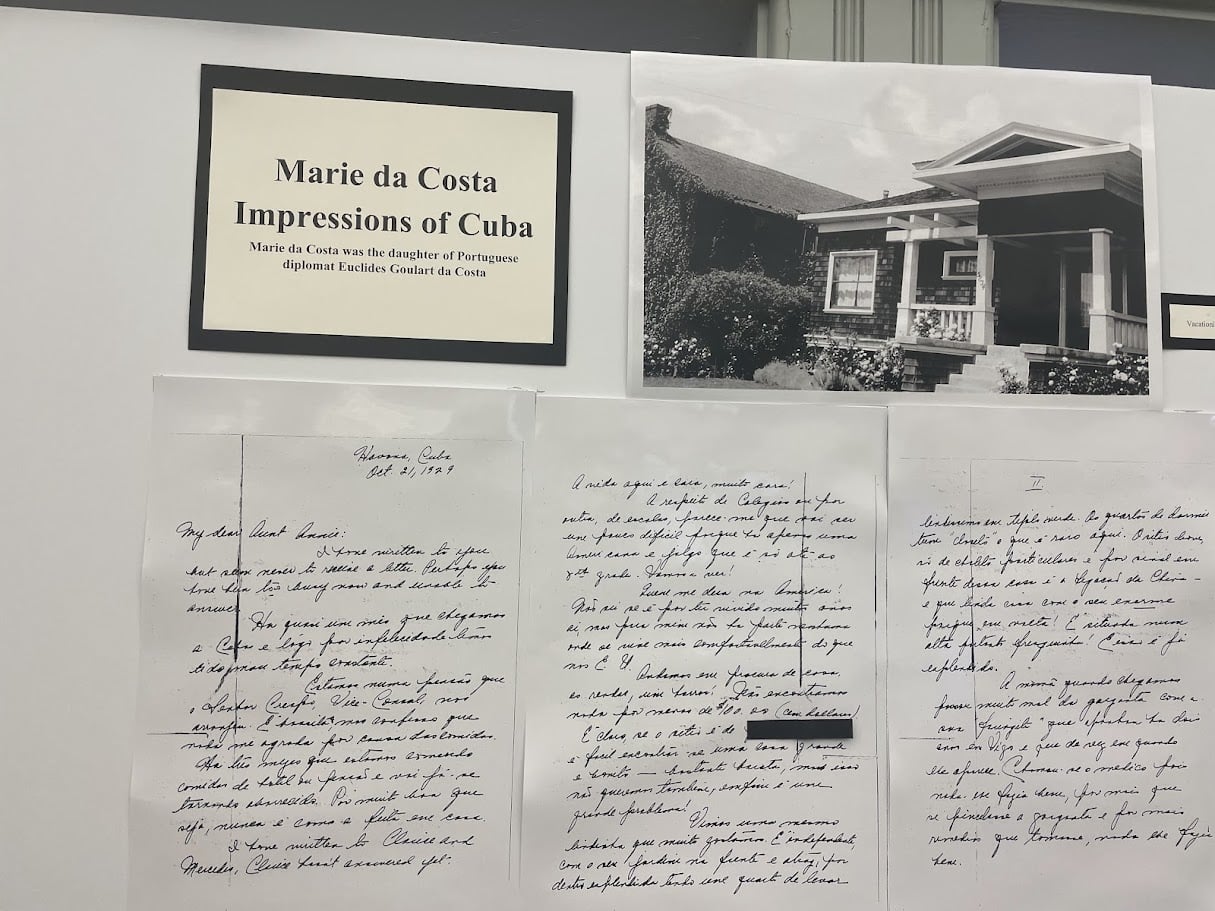 Marie da Costa
Impressions of Cuba
Marie da Costa was the daughter of Portuguese
diplomat Euclides Goulart da Costa
Vacationi
Havana, Cuba
Oct. 21, 1929
My dear Aunt Annie:
I have written to you
but seem never to receive a letter. Perhaps you
have been too busy now and unable to
answer.
Ha quasi um mês que chegamos
a Cuba e logo por infelicidade temos
tido mau tempo constante.
Estamos numa pensão que
o Senhor Crespo, Vice-Consul, nos
arranjou. É bonita mas confesso que
nada me agrada por causa das comidas.
Ha três mezes que estamos comendo
comidas de hotel ou pensão e vai já se
tornando aborrecido. Por muito boa que
seja, nunca é como a feita em casa.
I have written to Clarice and
Mercedes, Clarice hasn't answered yet.
A vida aqui e cara, muito cara!
A respeito de Colegios ou por
outra, de escolas, parece-me que vai ser
um pouco dificil porque ha apenas uma
americana e julgo que é só até ao
grade. Vamos a ver!
Quem me dera na America!
Não sei se é por ter vivido muitos anos
ai, mas para mim não ha parte nenhuma
onde se vive mais comfortavelmente do que
nos E. U.
Andamos em procura de casa,
as rendas, um horror! Não encontramos
nada por menos de $100.00 (cem dollars)
É claro, se o sitio é de
é facil encontrar-se uma casa grande
e bonita — bastante barata, mas isso
não queremos tambem, emfim é um
grande problema!
Vimos uma mesmo
lindinha que muito gostamos. É independente,
com o seu jardim na frente e atraz, por
dentro esplendida tendo um quarto de
II.
lindissimo em verde. Os quartos de dormir
tem "closets" o que é raro aqui. O sitio
só de chalets particulares e por sinal em
frente dessa casa é a Legação da China -
e que linda casa com o seu enorme
parque em volta! É situada num
alta portanto fresquinha! Enim é já
esplendido.
A mamã quando chegamos
passou muito mal da garganta com a
sua que apanhou ha dois
anos em Vigo e que de vez em quando
lhe aparece. Chamou-se o medico pois
nada lhe fazia bem, por mais que
se pincelasse a garganta e por mais
remedios que tomasse, nada lhe fazia
bem.